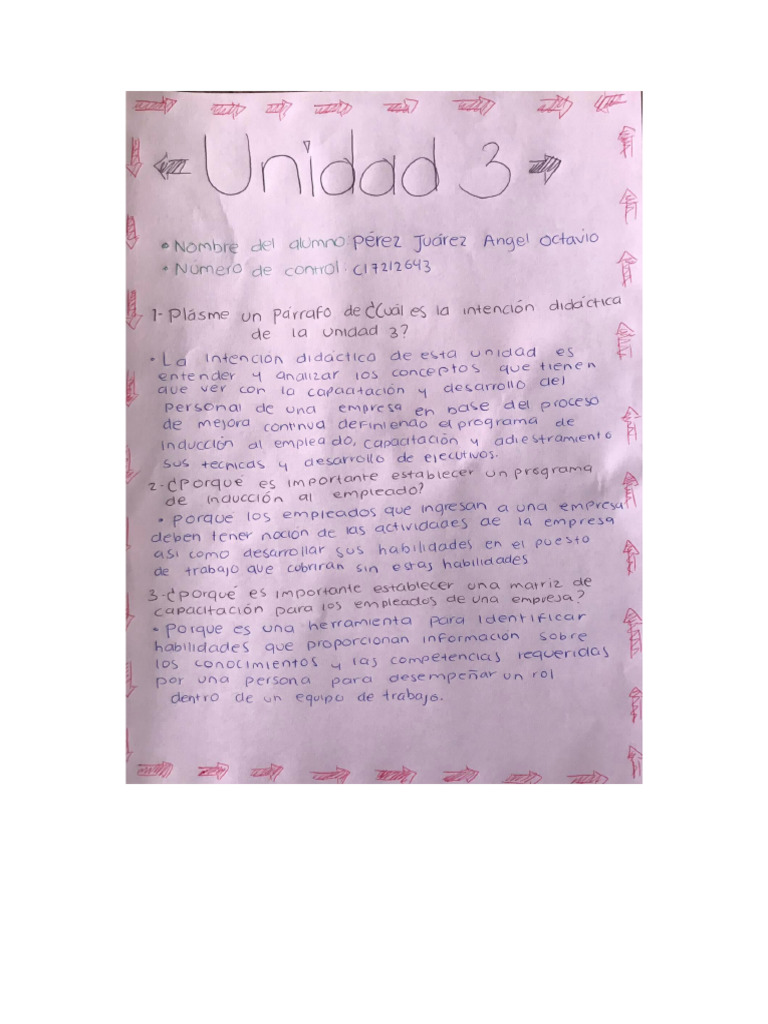 Unidad 3
• Nombre del alumno: Pérez Juárez Angel Octavio
• Número de control: C17212643
1- Plásme un Párrafo de ¿Cuál es la intención didáctica
de la unidad 3?
• La intención didáctica de esta unidad es
entender y analizar los conceptos que tienen
que ver con la capacitación y desarrollo del
Personal de una empresa en base del proceso
de mejora continua definiendo el programa de
inducción al empleado, capacitación y adiestramiento
sus tecnicas y desarrollo de ejecutivos.
2- ¿Porqué es importante establecer un programa
de inducción al empleado?
• Porque los empleados que ingresan a una empresa
deben tener noción de las actividades de la empresa
asi como desarrollar sus habilidades en el puesto
de trabajo que cubriran sin estas habilidades
3- ¿Porqué es importante establecer una matriz de
capacitación para los empleados de una empresa?
• Porque es una herramienta para identificar
habilidades que proporcionan información sobre
los conocimientos y las competencias requeridas
por una persona para desempeñar un rol
dentro de un equipo de trabajo.